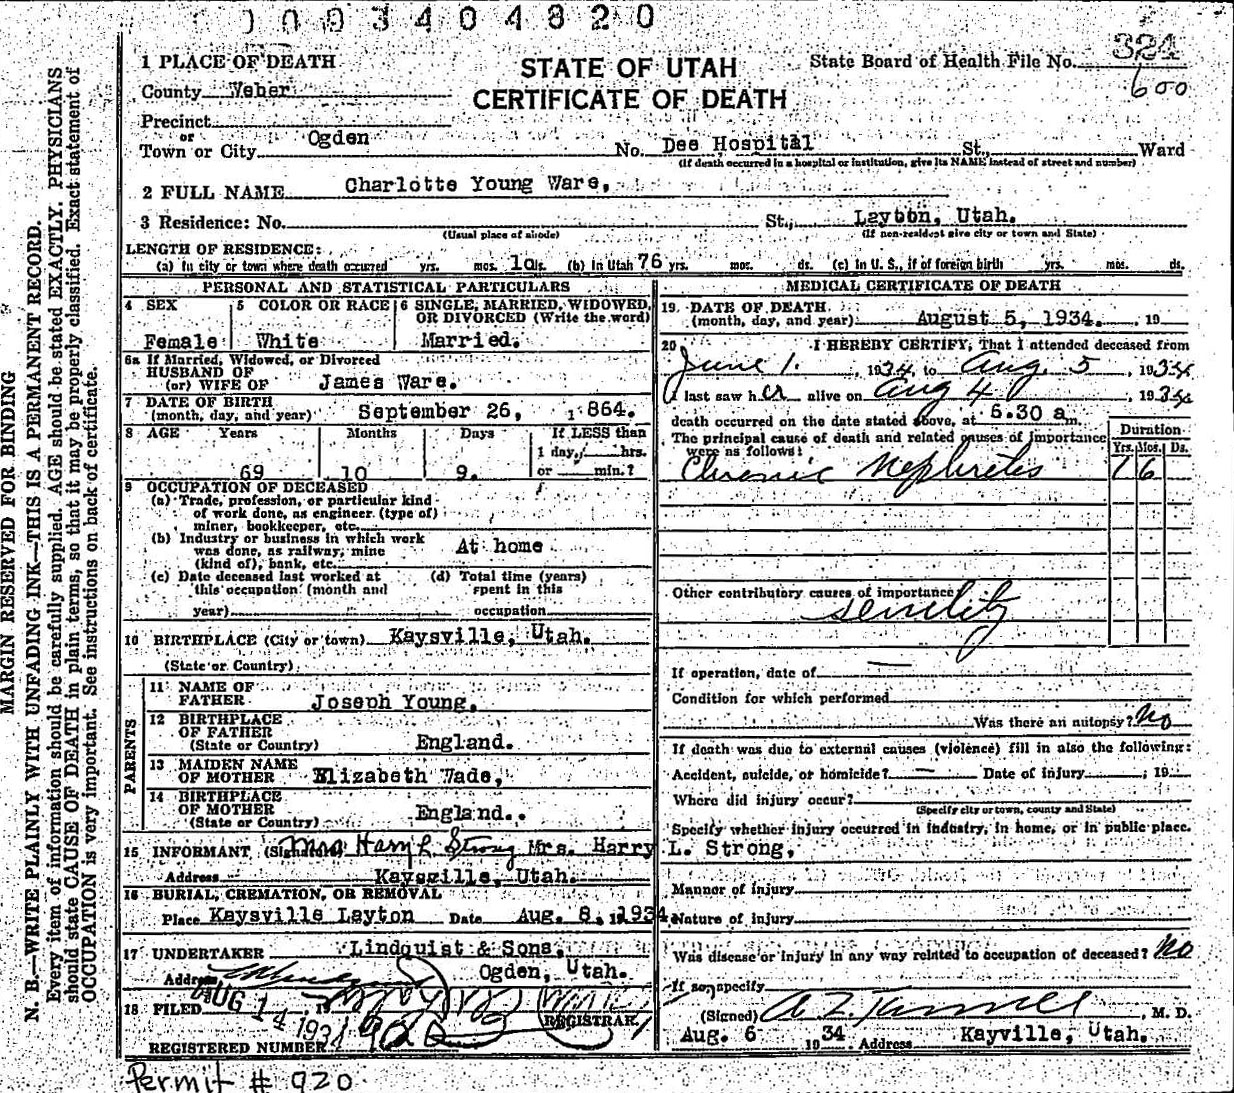 0093404820
1 PLACE OF DEATH
STATE OF UTAH
CERTIFICATE OF DEATH
State Board of Health File No. 324
600
County Weber
Precinct
or
Town or City Ogden No. Dee Hospital St., Ward
(If death occurred in a hospital or institution, give its NAME instead of street and number)
2 FULL NAME Charlotte Young Ware,
3 Residence: No. St., Layton, Utah.
(Usual place of abode) (If non-resident give city or town and State)
LENGTH OF RESIDENCE:
(a) In city or town where death occurred yrs. mos. 10 ds. (b) In Utah 76 yrs. mos. ds. (c) In U. S., if of foreign birth yrs. mos. ds.
PERSONAL AND STATISTICAL PARTICULARS
4 SEX 5 COLOR OR RACE 6 SINGLE, MARRIED, WIDOWED, OR DIVORCED (Write the word)
Female White Married.
6a If Married, Widowed, or Divorced
HUSBAND OF
(or) WIFE OF James Ware.
7 DATE OF BIRTH
(month, day, and year) September 26, 1864.
8 AGE Years Months Days If LESS than
1 day, hrs.
69 10 9. or min.?
9 OCCUPATION OF DECEASED
(a) Trade, profession, or particular kind
of work done, as engineer (type of)
miner, bookkeeper, etc.
(b) Industry or business in which work
was done, as railway, mine
(kind of), bank, etc. At home
(c) Date deceased last worked at (d) Total time (years)
this occupation (month and spent in this
year) occupation
10 BIRTHPLACE (City or town) Kaysville, Utah.
(State or Country)
PARENTS
11 NAME OF
FATHER Joseph Young,
12 BIRTHPLACE
OF FATHER
(State or Country) England.
13 MAIDEN NAME
OF MOTHER Elizabeth Wade,
14 BIRTHPLACE
OF MOTHER
(State or Country) England..
15 INFORMANT (Signature) Mrs Harry L Strong Mrs. Harry L. Strong,
Address Kaysville, Utah.
16 BURIAL, CREMATION, OR REMOVAL
Place Kaysville Layton Date Aug. 8, 1934
17 UNDERTAKER Lindquist & Sons,
Address Ogden, Utah.
18 FILED AUG 14 1934
REGISTRAR.
REGISTERED NUMBER
Permit # 920
MEDICAL CERTIFICATE OF DEATH
19 DATE OF DEATH
(month, day, and year) August 5, 1934. , 19
20 I HEREBY CERTIFY, That I attended deceased from
June 1. , 1934, to Aug. 5 , 1934
I last saw her alive on Aug 4 , 1934
death occurred on the date stated above, at 6.30 a m.
The principal cause of death and related causes of importance
were as follows:
Duration
Yrs. Mos. Ds.
Chronic Nephretes 1 6
Other contributory causes of importance
senility
If operation, date of —
Condition for which performed
Was there an autopsy? No
If death was due to external causes (violence) fill in also the following:
Accident, suicide, or homicide? — Date of injury , 19
Where did injury occur?
(Specify city or town, county and State)
Specify whether injury occurred in industry, in home, or in public place.
Manner of injury
Nature of injury
Was disease or injury in any way related to occupation of deceased? No
If so, specify
(Signed) , M. D.
Aug. 6 1934 Address Kayville, Utah.
MARGIN RESERVED FOR BINDING
N. B.—WRITE PLAINLY WITH UNFADING INK—THIS IS A PERMANENT RECORD.
Every item of information should be carefully supplied. AGE should be stated EXACTLY. PHYSICIANS
should state CAUSE OF DEATH in plain terms, so that it may be properly classified. Exact statement of
OCCUPATION is very important. See instructions on back of certificate.